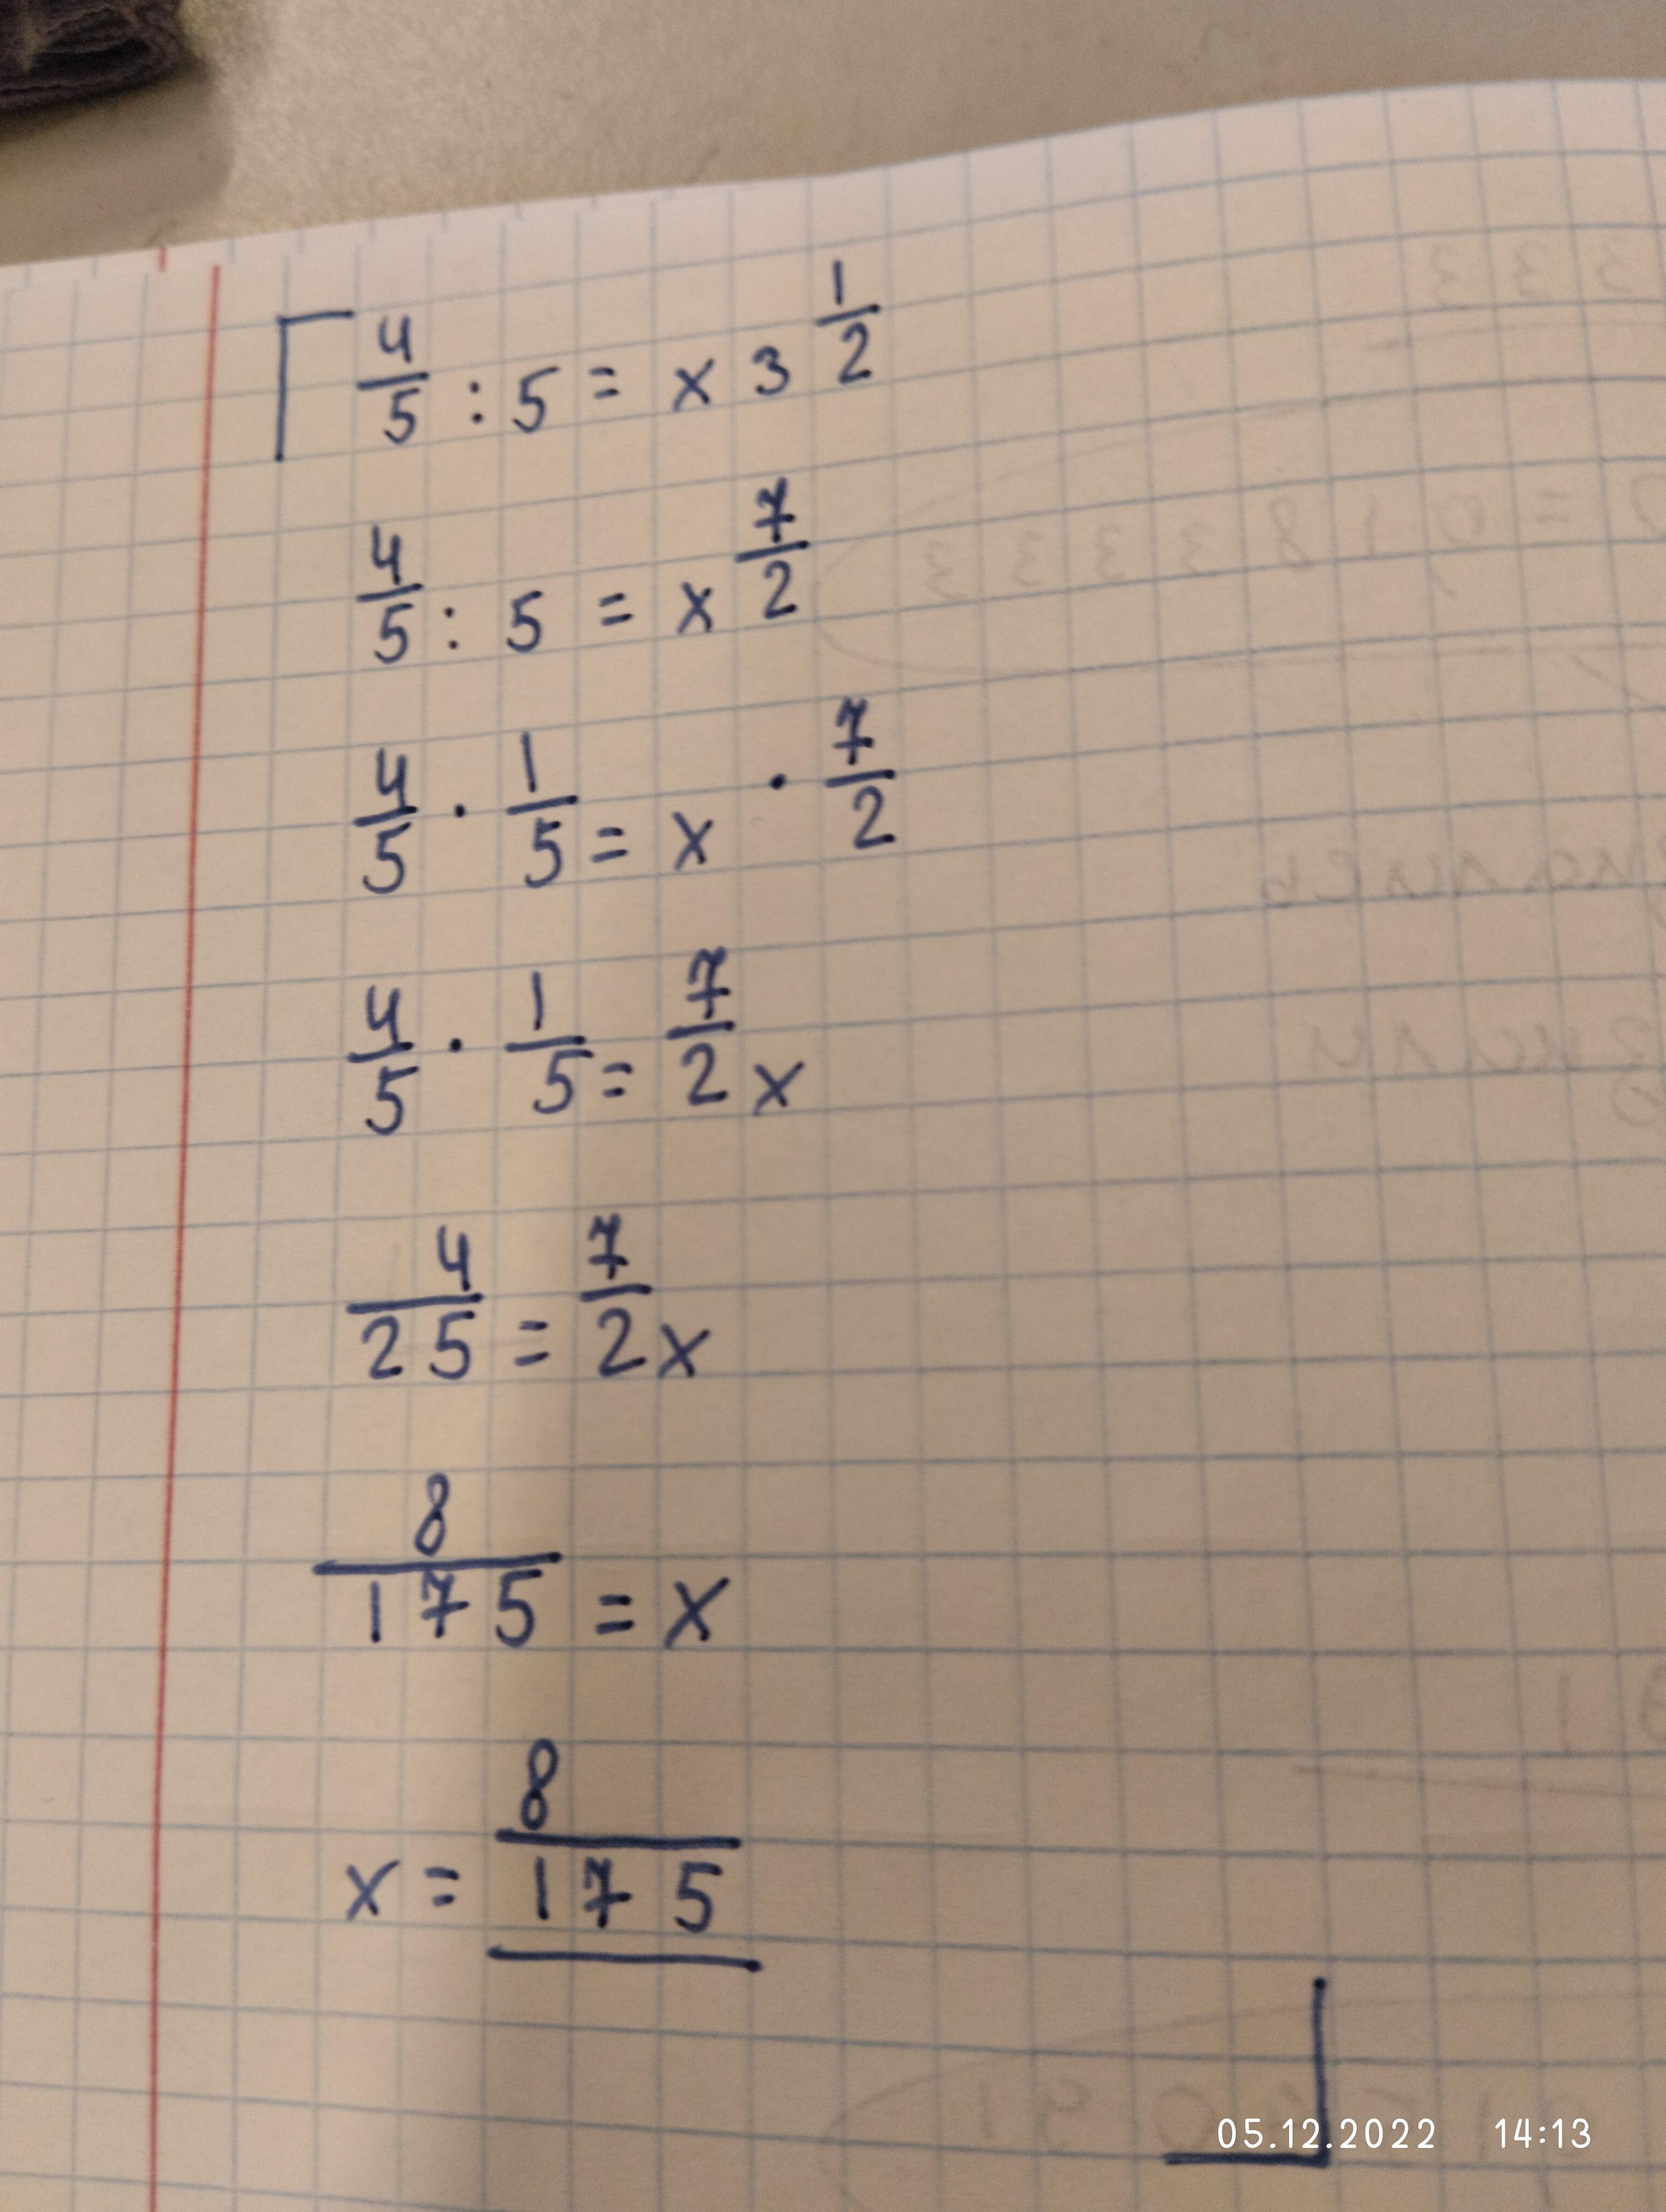 4/5 : 5 = x 3 1/2
4/5 : 5 = x 7/2
4/5 · 1/5 = x · 7/2
4/5 · 1/5 = 7/2 x
4/25 = 7/2 x
8/175 = x
x = 8/175
05.12.2022 14:13